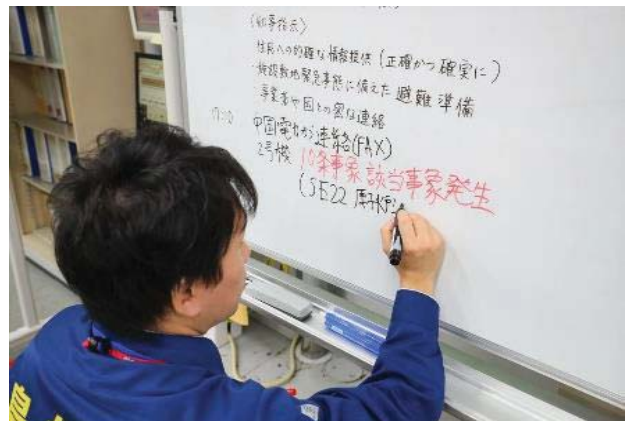 (知事指示)
・住民への的確な情報提供 (正確かつ確実に)
・施設敷地緊急事態に備えた 避難準備
・事業者や国との密な連絡
中国電力から連絡(FAX)
2号機 10条事象 該当事象発生
(SE22 原子炉
島